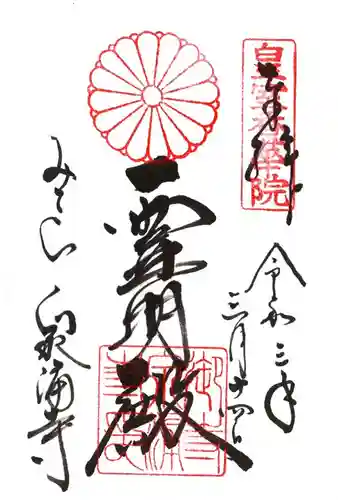 皇室香華院
奉拝
令和三年
三月十四日
霊明殿
みてら 泉涌寺